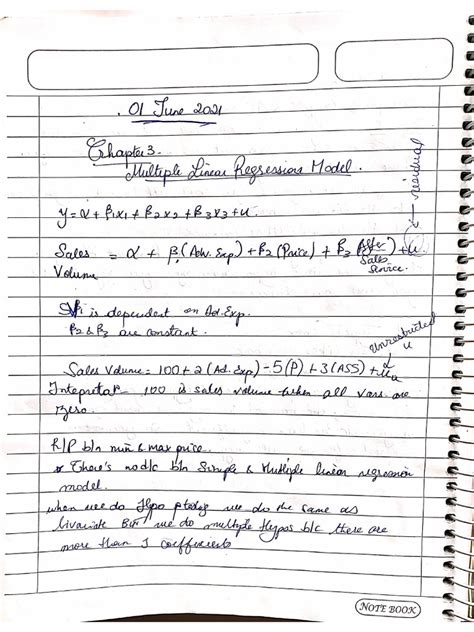 01 June 2021
Chapter 3.
Multiple Linear Regression Model.
y = α + β1x1 + β2x2 + β3x3 + u.
← residual
Sales Volume = α + β1(Adv. Exp) + β2(Price) + β3(After Sales Service) + u.
is dependent on Ad. Exp.
β2 & β3 are constant.
Unrestricted
u
Sales Volume = 100 + 2(Ad. Exp) - 5(P) + 3(ASS) + u
100 is sales volume when all vars. are
zero.
R/P b/n min & max price.
There's no d/c b/n Simple & Multiple linear regression
model.
when we do Hypo we do the same as
bivariate But we do multiple Hypos b/c there are
more than 1 coefficients
NOTE BOOK